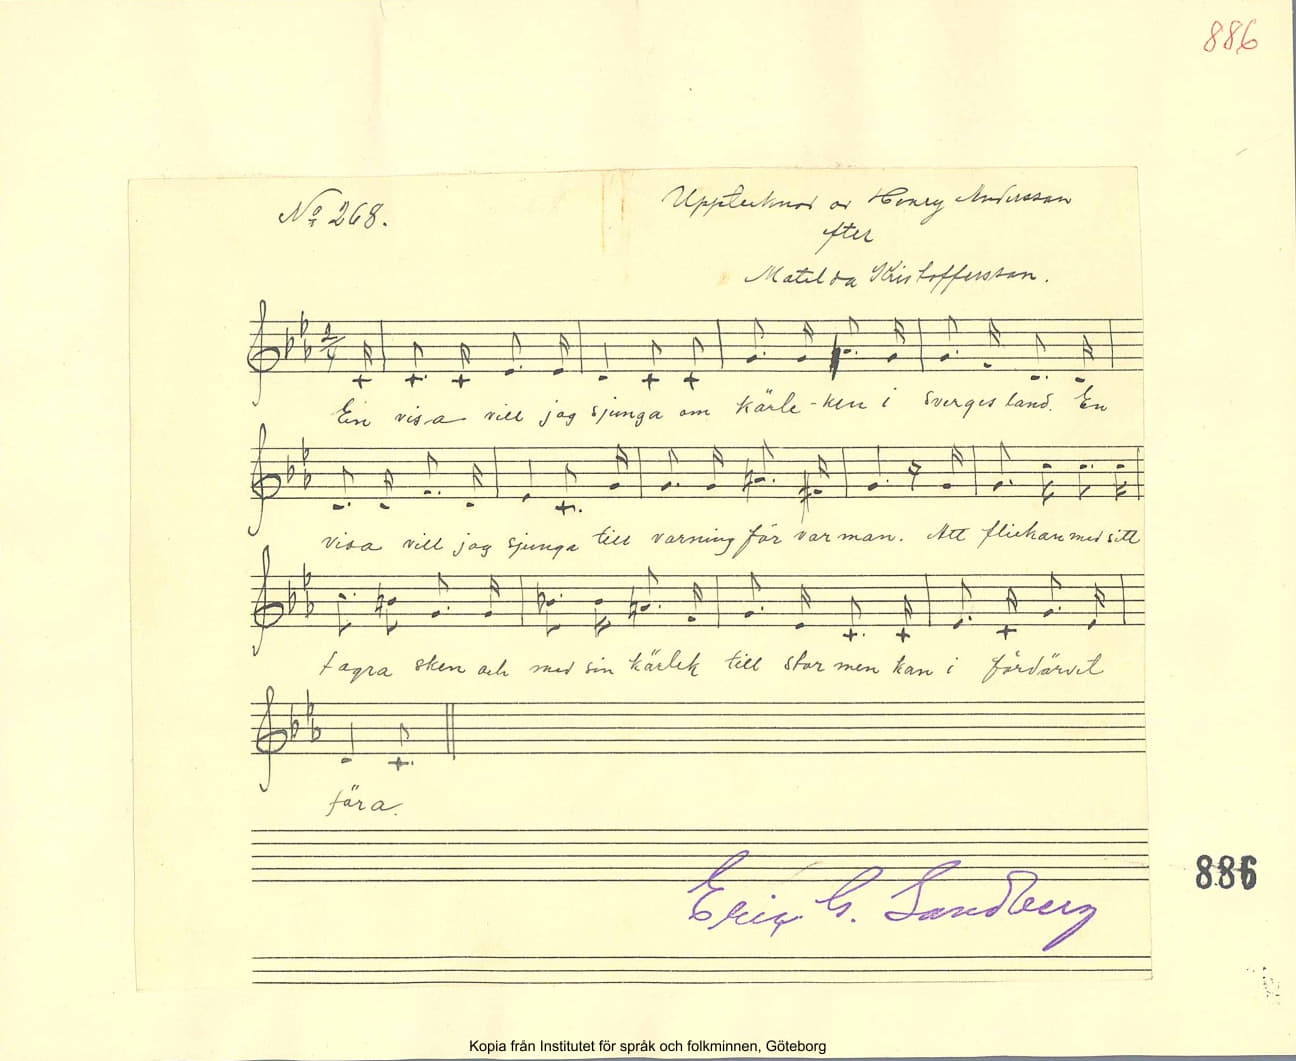 886
No 268.
Upptecknad av Henry Andersson
efter
Matilda Kristoffersson.
2/4
En visa vill jag sjunga om kärle-ken i Sveriges land. En
visa vill jag sjunga till varning för var man. Att flickan med sitt
fagra sken och med sin kärlek till stor men kan i fördärvet
föra.
Eric G. Sandberg
886
Kopia från Institutet för språk och folkminnen, Göteborg